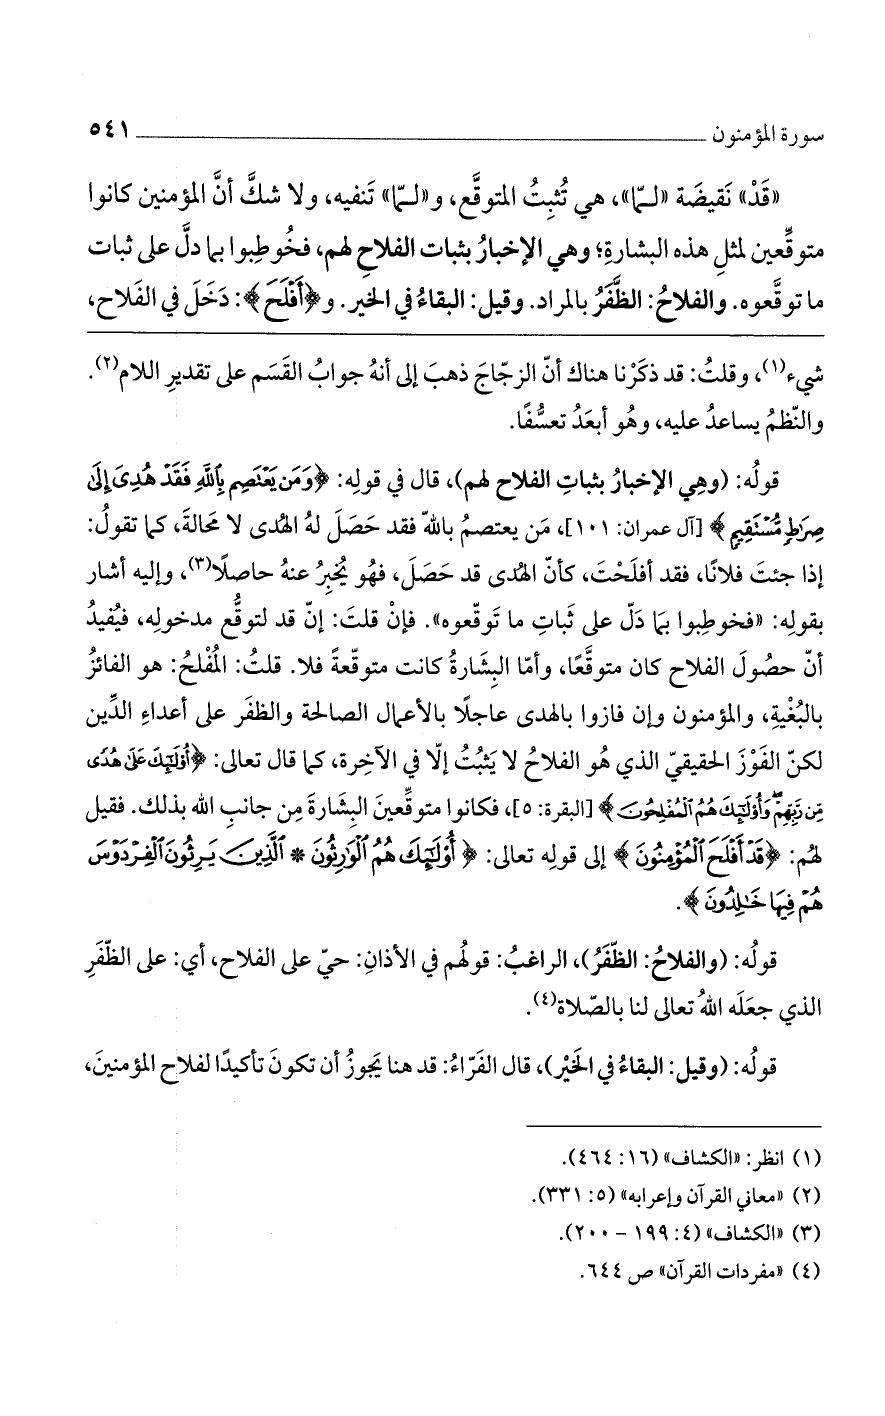 سورة المؤمنون ٥٤١
«قَدْ» نَقيضَة «لـمّا»، هي تُثبِتُ المتوقَّع، و«لـمّا» تَنفيه، ولا شكَّ أنَّ المؤمنين كانوا
متوقِّعين لمثلِ هذه البشارةِ؛ وهي الإخبارُ بثبات الفلاحِ لهم، فخُوطِبوا بما دلَّ على ثبات
ما توقَّعوه. والفلاحُ: الظَّفَرُ بالمراد. وقيل: البقاءُ في الخير. و﴿أَفْلَحَ﴾: دَخَلَ في الفَلاح،
شيء(١)، وقلتُ: قد ذكَرْنا هناك أنّ الزجّاجَ ذهبَ إلى أنهُ جوابُ القَسَم على تقديرِ اللام(٢).
والنّظمُ يساعدُ عليه، وهُو أبعَدُ تعسُّفًا.
قولُه: (وهِي الإخبارُ بثباتِ الفلاح لهم)، قال في قولِه: ﴿وَمَن يَعْتَصِم بِاللَّهِ فَقَدْ هُدِىَ إِلَىٰ
صِرَٰطٍ مُّسْتَقِيمٍ﴾ [آل عمران: ١٠١]، مَن يعتصمُ بالله فقد حَصَلَ لهُ الهُدى لا مَحالةَ، كما تقولُ:
إذا جئتَ فلانًا، فقد أفلَحْتَ، كأنّ الهُدى قد حَصَلَ، فهُو يُخبِرُ عنهُ حاصلًا(٣)، وإليه أشار
بقولِه: «فخوطِبوا بمَا دَلّ على ثَباتِ ما تَوقّعوه». فإنْ قلتَ: إنّ قد لتوقُّع مدخولِه، فيُفيدُ
أنّ حصُولَ الفلاح كان متوقَّعًا، وأمّا البِشَارةُ كانت متوقّعةً فلا. قلتُ: المُفْلحُ: هو الفائزُ
بالبُغْيةِ، والمؤمنون وإن فازوا بالهدى عاجلًا بالأعمال الصالحة والظفَر على أعداءِ الدِّين
لكنّ الفَوْزَ الحقيقيّ الذي هُو الفلاحُ لا يَثبُتُ إلّا في الآخِرة، كما قال تعالى: ﴿أُوْلَٰٓئِكَ عَلَىٰ هُدًى
مِّن رَّبِّهِمْ وَأُوْلَٰٓئِكَ هُمُ الْمُفْلِحُونَ﴾ [البقرة: ٥]، فكانوا متوقِّعينَ البِشَارةَ مِن جانبِ الله بذلك. فقيل
لهُم: ﴿قَدْ أَفْلَحَ الْمُؤْمِنُونَ﴾ إلى قولِه تعالى: ﴿أُوْلَٰٓئِكَ هُمُ الْوَٰرِثُونَ * الَّذِينَ يَرِثُونَ الْفِرْدَوْسَ
هُمْ فِيهَا خَٰلِدُونَ﴾.
قولُه: (والفلاحُ: الظّفَرُ)، الراغبُ: قولُهم في الأذانِ: حيّ على الفلاح، أي: على الظّفَرِ
الذي جعَلَه اللهُ تعالى لنا بالصّلاة(٤).
قولُه: (وقيل: البقاءُ في الخَيْر)، قال الفَرّاءُ: قد هنا يَجوزُ أن تكونَ تأكيدًا لفلاحِ المؤمنينَ،
(١) انظر: «الكشاف» (١٦: ٤٦٤).
(٢) «معاني القرآن وإعرابه» (٥: ٣٣١).
(٣) «الكشاف» (٤: ١٩٩ – ٢٠٠).
(٤) «مفردات القرآن» ص ٦٤٤.